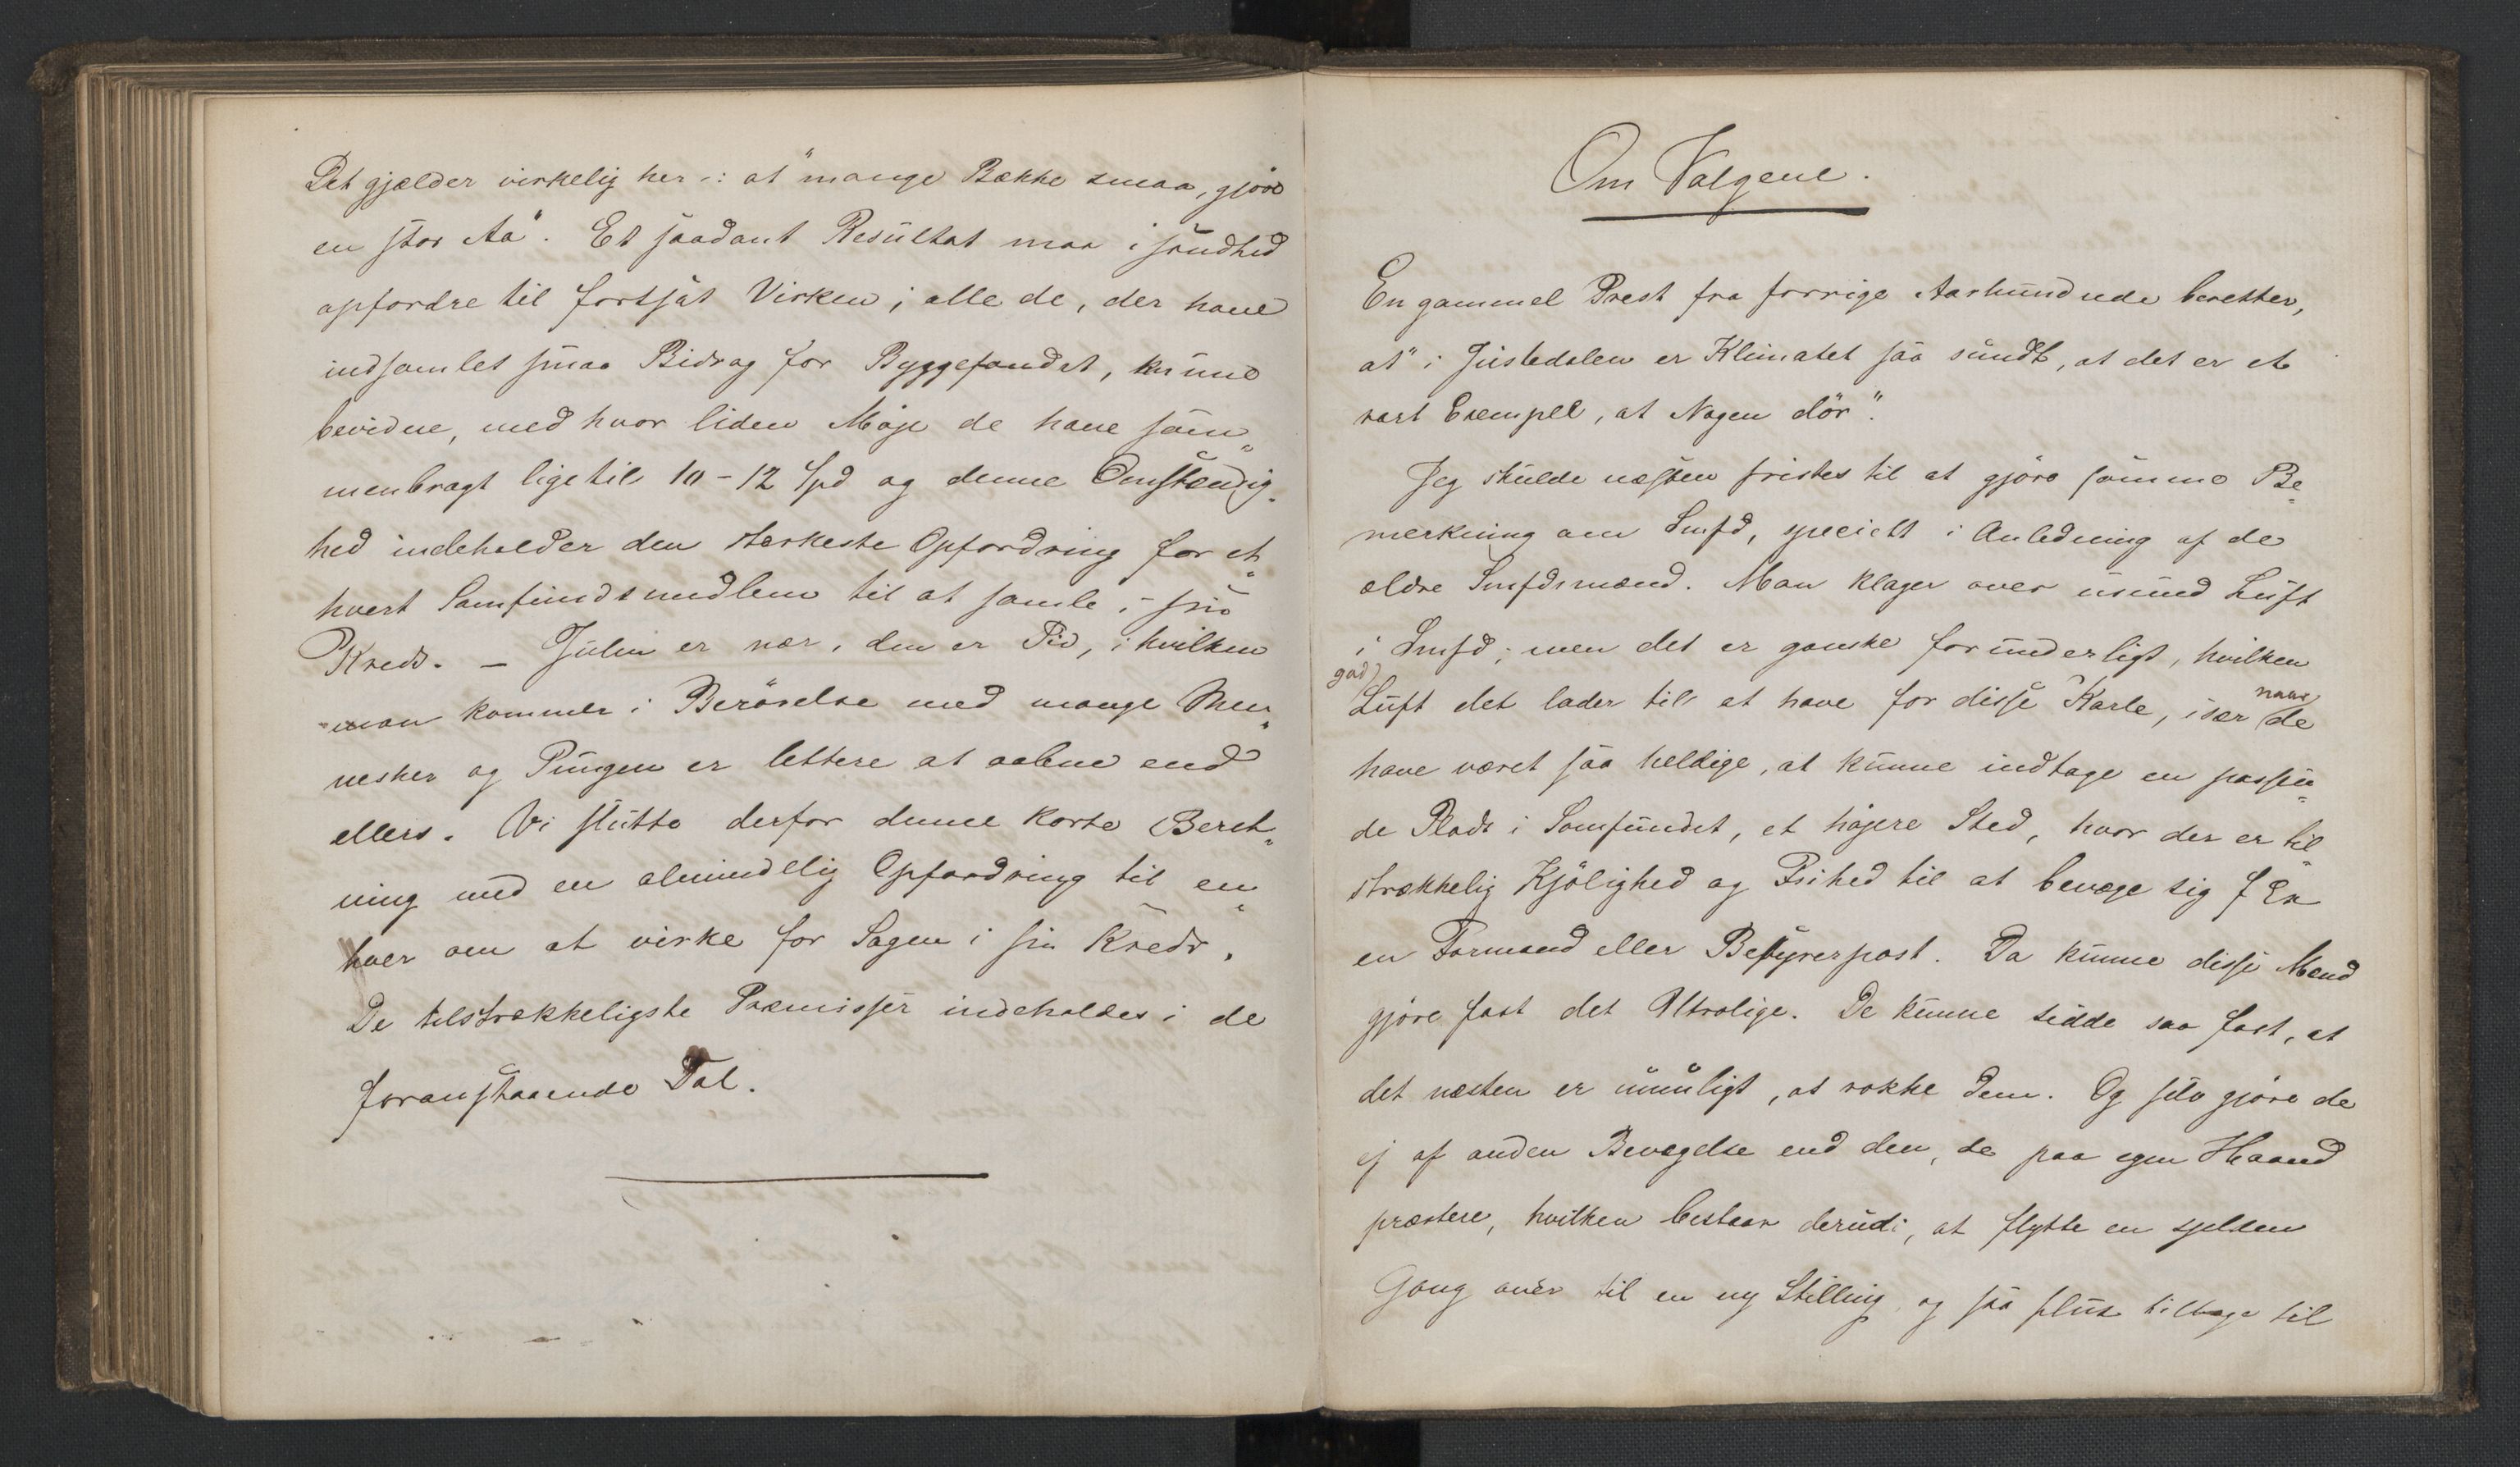 Det gjælder virkelig her -: at "mange Bække smaa, gjøre
en stor Aa". Et saadant Resultat maa i sandhed
opfordre til fortsat Virken; alle de, der have
indsamlet smaa Bidrag for Byggefondet, kunne
bevidne, med hvor liden Møje de have sam„
menbragt ligetil 10-12 Spd og denne Omstændig„
hed indeholder den sterkeste Opfordring for et„
hvert Samfundsmedlem til at samle i sin
Kreds. – Julen er nær, den er Tid, i hvilken
man kommer i Berørelse med mange Men„
nesker og Pungen er lettere at aabne end
ellers. Vi slutte derfor denne korte Beret„
ning med en almindelig Opfordring til en„
hver om at virke for Sagen i sin Kreds.
De tilstrækkeligste Præmisser indeholdes i de
foranstaaende Tal.
Om Valgene.
En gammel Prest fra forrige Aarhundrede beretter,
at "i Justedalen er Klimatet saa sundt, at det er et
rart Exempel, at Nogen dör".
Jeg skulde næsten fristes til at gjöre samme Be„
merkning om Smfd, specielt i Anledning af de
ældre Smfdsmænd. Man klager over usund Luft
i Smfd; men det er ganske forunderligt, hvilken
god
Luft det lader til at have for disse Karle, især naar de
have været saa heldige, at kunne indtage en passen„
de Plads i Samfundet, et højere Sted, hvor der er til„
strækkelig Kjölighed og Frihed til at bevæge sig f Ex
en Formand eller Bestyrerpost. Da kunne disse Mænd
gjöre fast det Utrolige. De kunne sidde saa fast, at
det næsten er umuligt, at rokke dem. Og selv gjöre de
ej af anden Bevægelse end den, de paa egen Haand
præstere, hvilken bestaar derudi, at flytte en sjelden
Gang over til en ny Stilling, og saa flux tilbage til